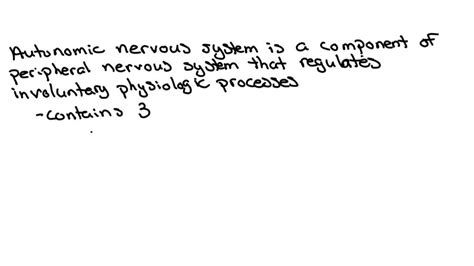 Autonomic nervous system is a component of
peripheral nervous system that regulates
involuntary physiologic processes
-contains 3